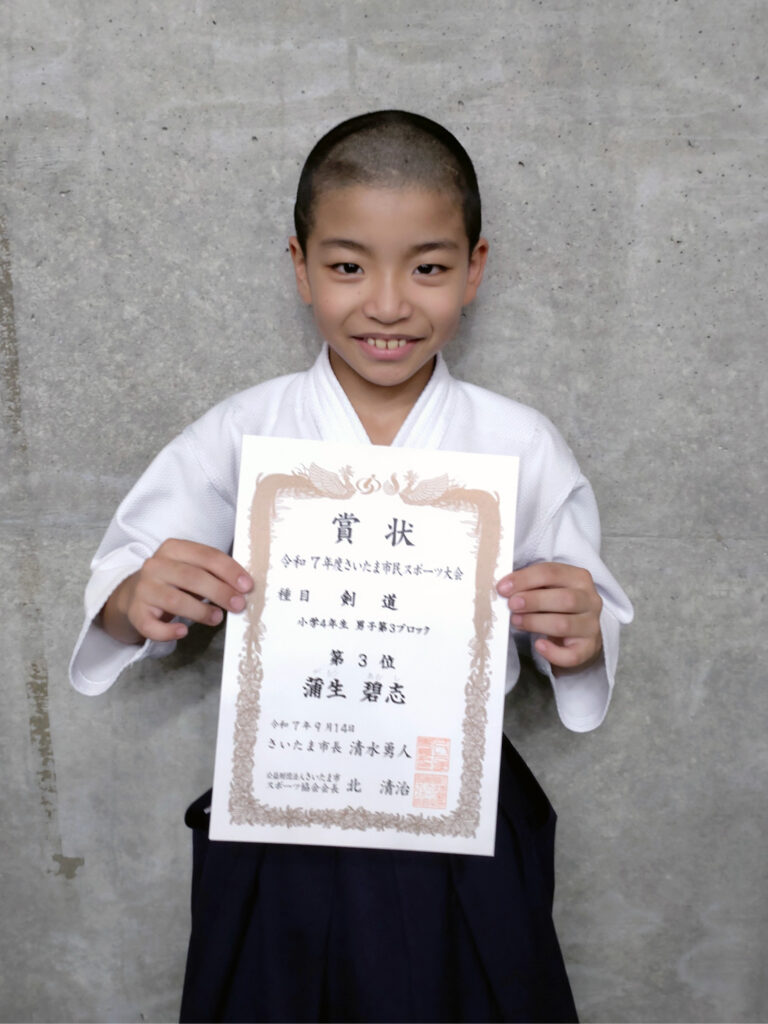 賞状
令和7年度さいたま市民スポーツ大会
種目 剣道
小学4年生 男子第3ブロック
第3位
蒲生 碧志
令和7年9月14日
さいたま市長 清水勇人
公益財団法人さいたま市
スポーツ協会会長 北 清治